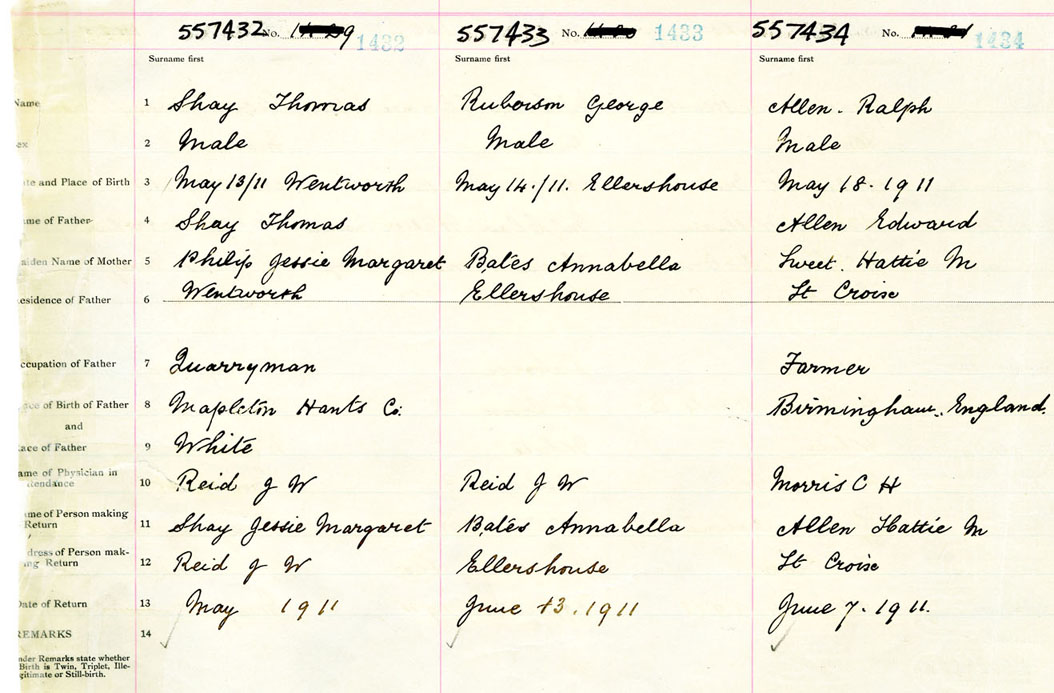 557432 No. 1432
557433 No. 1433
557434 No. 1434
Surname first Surname first Surname first
Name 1 Shay Thomas Ruberson George Allen. Ralph
ex 2 Male Male Male
te and Place of Birth 3 May 13/11 Wentworth May 14./11. Ellershouse May 18. 1911
me of Father 4 Shay Thomas Allen Edward
aiden Name of Mother 5 Philip Jessie Margaret Bates Annabella Sweet. Hattie M
esidence of Father 6 Wentworth Ellershouse St Croise
ccupation of Father 7 Quarryman Farmer
ce of Birth of Father 8 Mapleton Hants Co. Birmingham. England.
and
ace of Father 9 White
ame of Physician in
ttendance 10 Reid J W Reid J W Morris C H
me of Person making
Return 11 Shay Jessie Margaret Bates Annabella Allen Hattie M
dress of Person mak-
ing Return 12 Reid J W Ellershouse St Croise
Date of Return 13 May 1911 June 13. 1911 June 7. 1911.
REMARKS 14
nder Remarks state whether
Birth is Twin, Triplet, Ille-
gitimate or Still-birth.